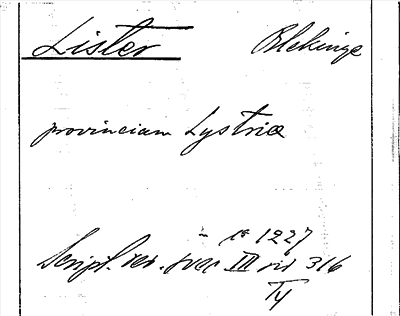 Lister Blekinge
provinciam Lystriæ
1227
Script. rer. svec III sid 316
Ty